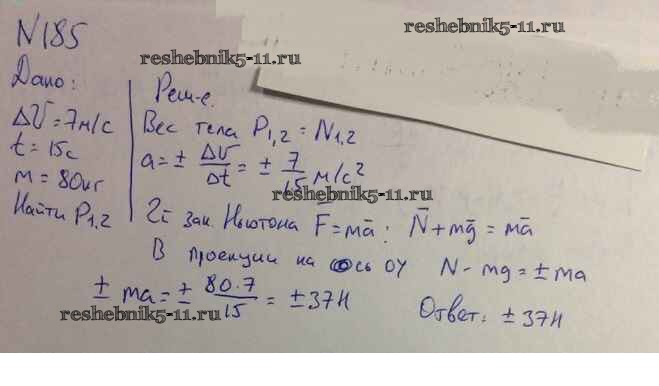 N185
reshebnik5-11.ru
reshebnik5-11.ru
Дано:
ΔV = 7м/с
t = 15с
м = 80кг
Найти P1,2
Реш-е.
Вес тела P1,2 = N1,2
a = ± ΔV/Δt = ± 7/15 м/с²
reshebnik5-11.ru
2й зак. Ньютона F̄ = mā : N̄ + mḡ = mā
В проекции на ось OY N - mg = ± ma
± ma = ± 80·7/15 = ± 37Н
Ответ: ± 37Н
reshebnik5-11.ru